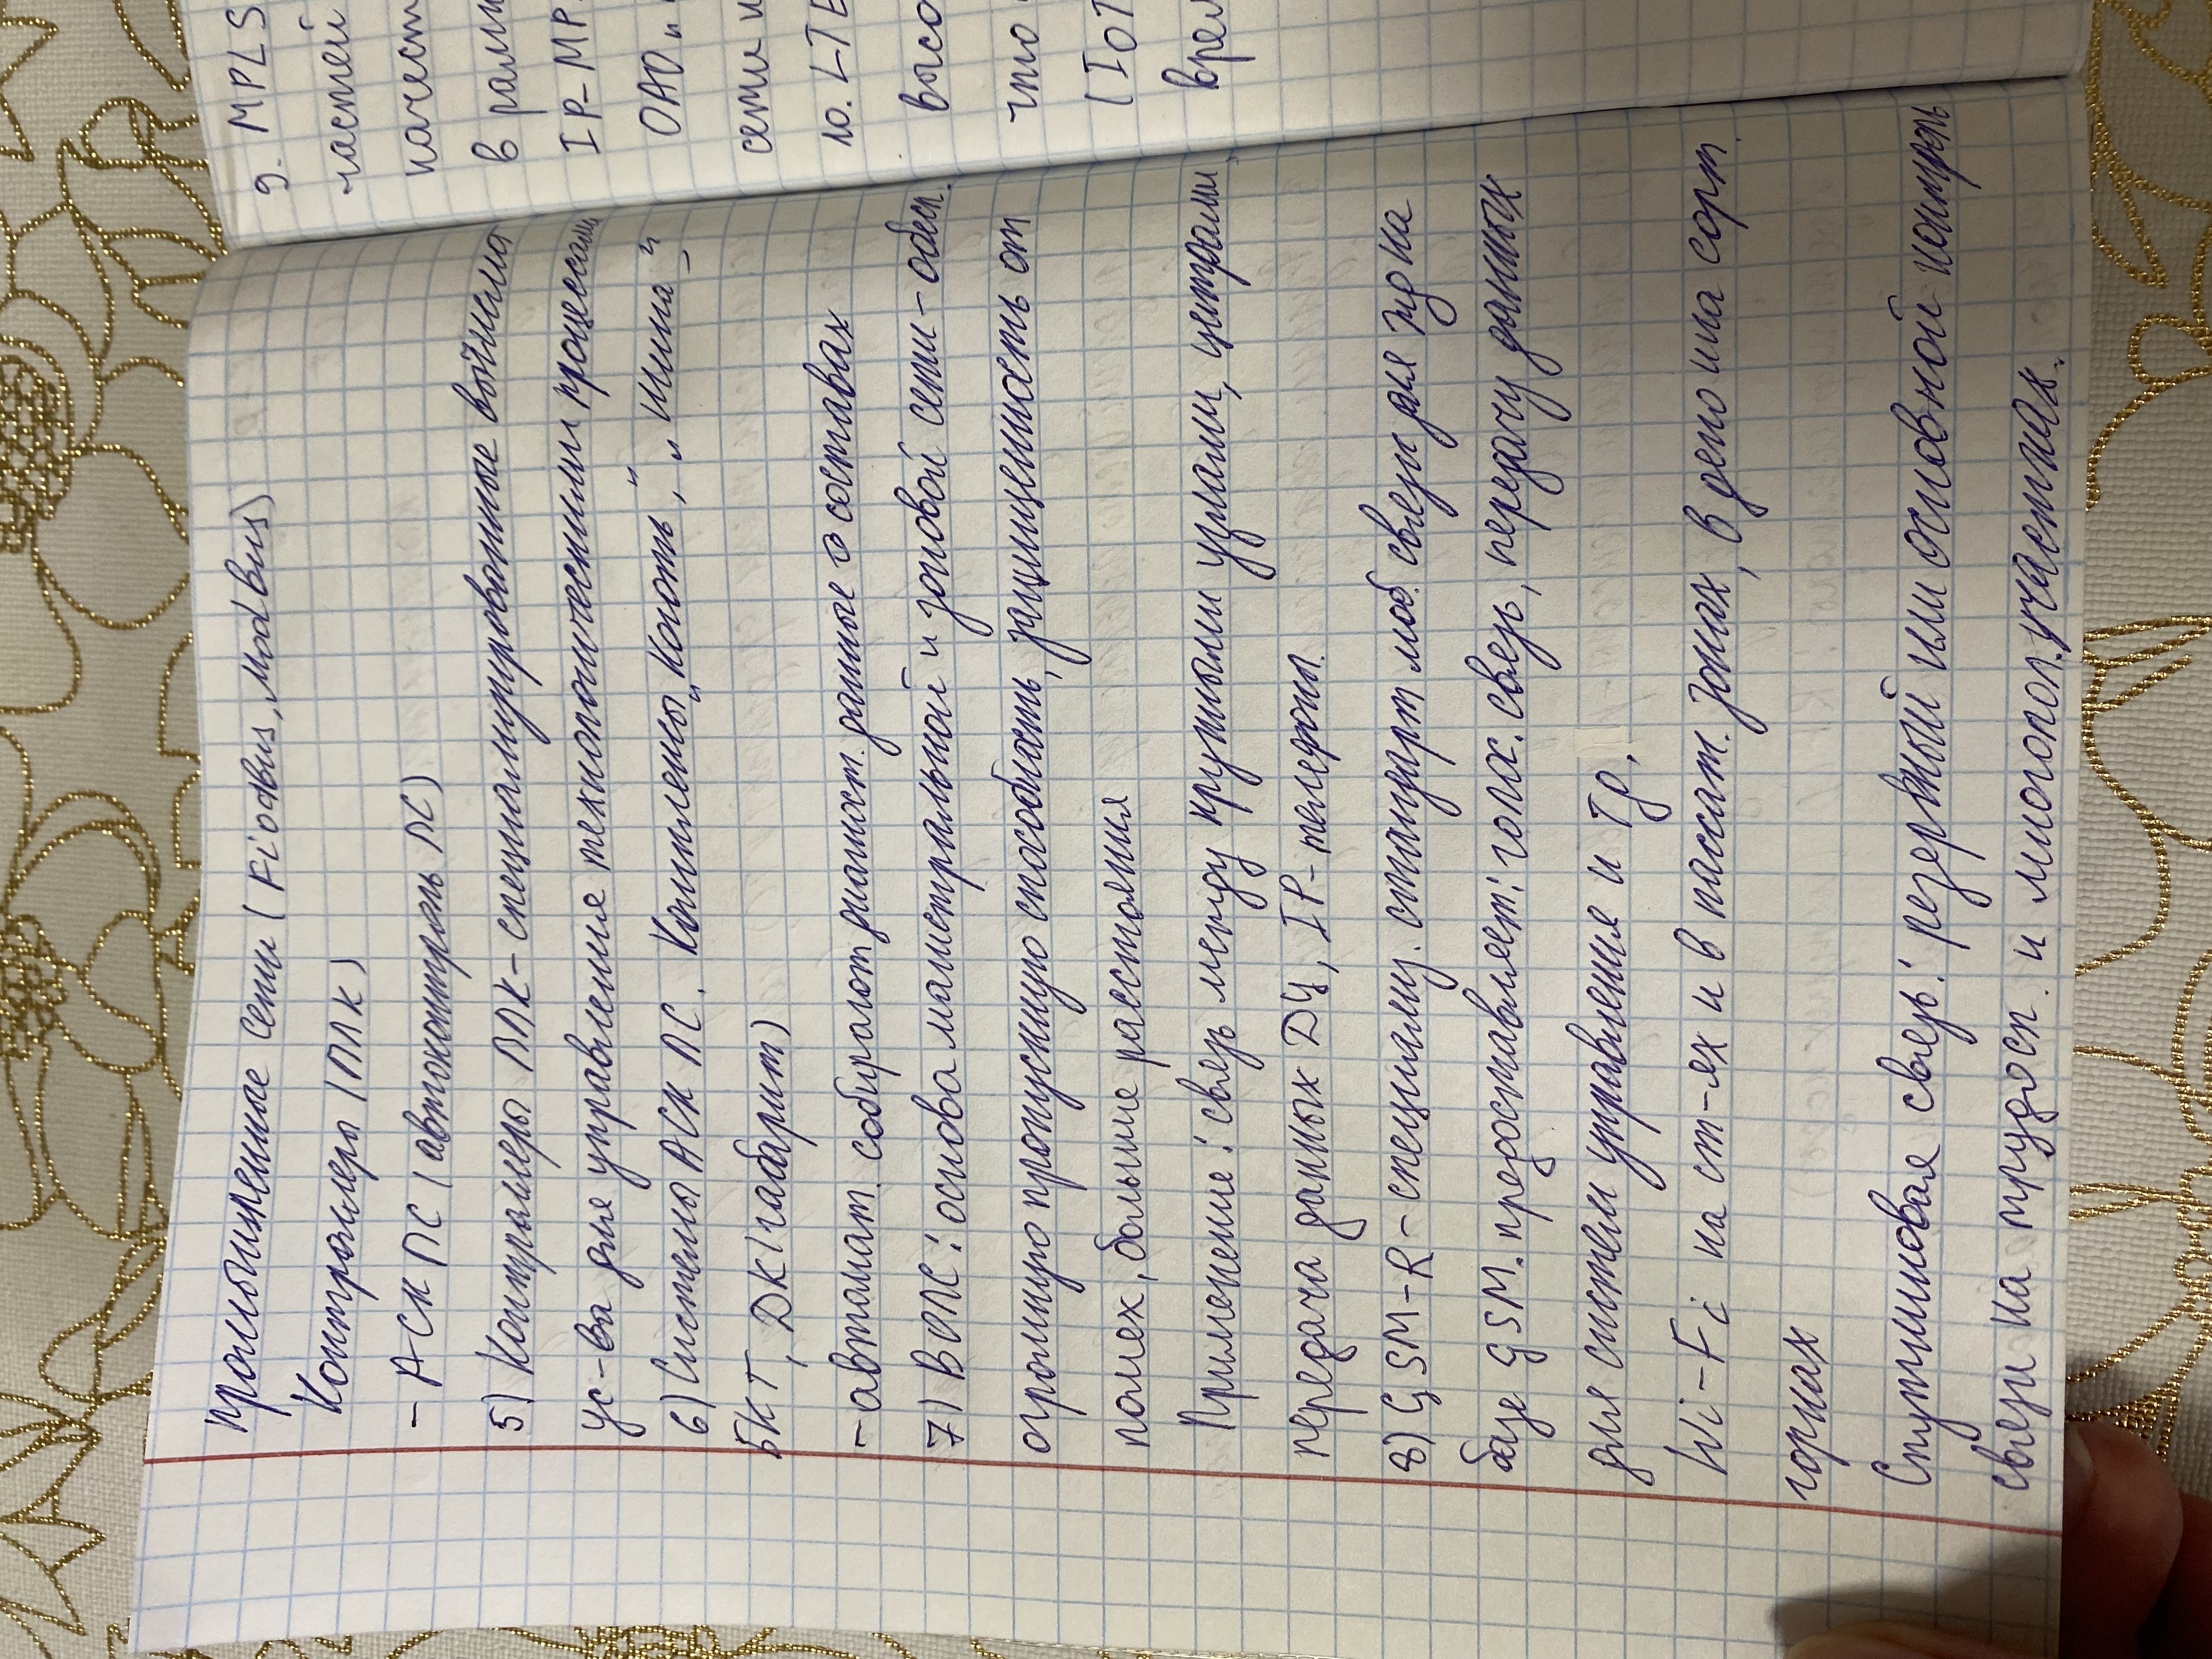 промышленные сети (Fiodbus, Modbus)
Контроллеры (ПЛК)
- АСК ПС (автоконтроль ПС)
5) Контроллеры ПЛК - специализированные
ус-ва для управление технологическими процессами
6) Системы АСК ПС. Комплексы „Коготь", „Шина"
БКТ, ДК (габарит)
- автомат. собирают диагност. данные о составах
7) ВОЛС: основа магистральной и зоновой сети - обесп.
огромную пропускную способность, защищенность от
помех, большие расстояния
Применение: связь между крупными узлами, центрами,
передача данных ДЦ, IP-телефоны.
8) GSM-R - специализ. стандарт моб. связи для жд на
базе GSM. предоставляет: голос. связь, передачу данных
для систем управления и ТД.
Wi-Fi на ст-ях и в пассат. зонах, в депо и на сорт.
горках
Спутниковая связь: резервный или основной
связи на трудосп. и многол. участках.
9. MPLS
частей
качест
в рамк
IP-MP
ОАО „
сети и
10. LTE
высо
что
(IoT
врем